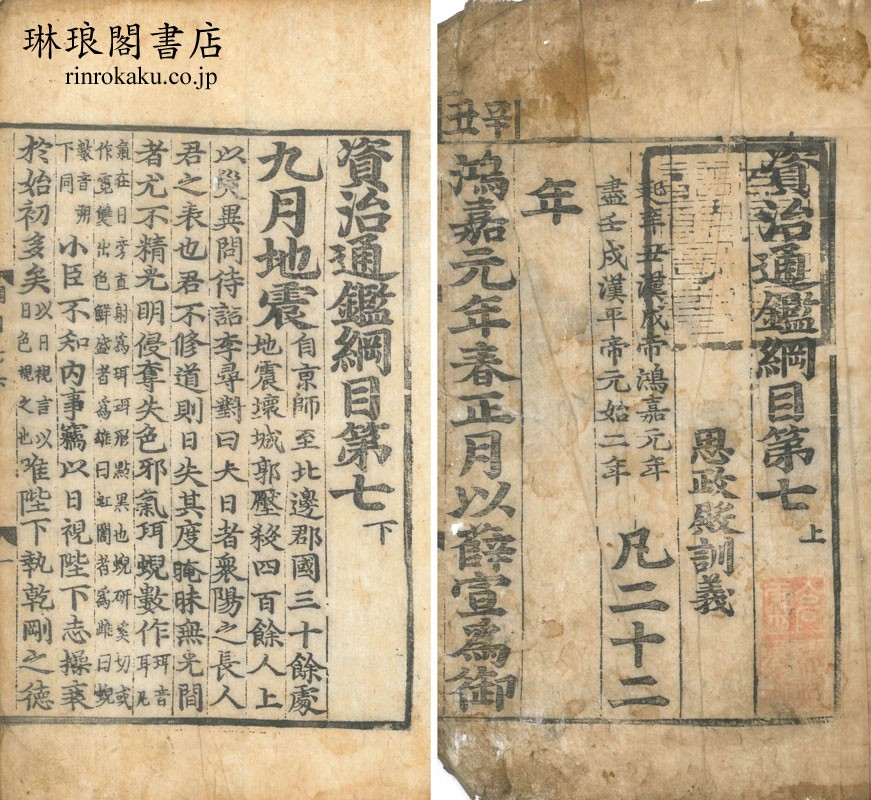 琳琅閣書店
rinrokaku.co.jp
資治通鑑綱目第七上
思政殿訓義
起辛丑漢成帝鴻嘉元年
盡壬戌漢平帝元始二年
凡二十二
年
辛丑
鴻嘉元年春正月以薛宣爲御
資治通鑑綱目第七下
九月地震
自京師至北邊郡國三十餘處
地震壞城郭壓殺四百餘人上
以災異問待詔李尋對曰夫日者衆陽之長人
君之表也君不修道則日失其度晻昧無光間
者尤不精光明侵奪失色邪氣珥蜺數作
珥音
耳凡
氣在日旁直射爲珥珥形點黑也蜺研奚切或
作霓雙出色鮮盛者爲雄曰虹闇者爲雌曰蜺
數音朔
下同
小臣不知內事竊以日視陛下志操衰
於始初多矣
以日視言以
日色視之也
唯陛下執乾剛之德